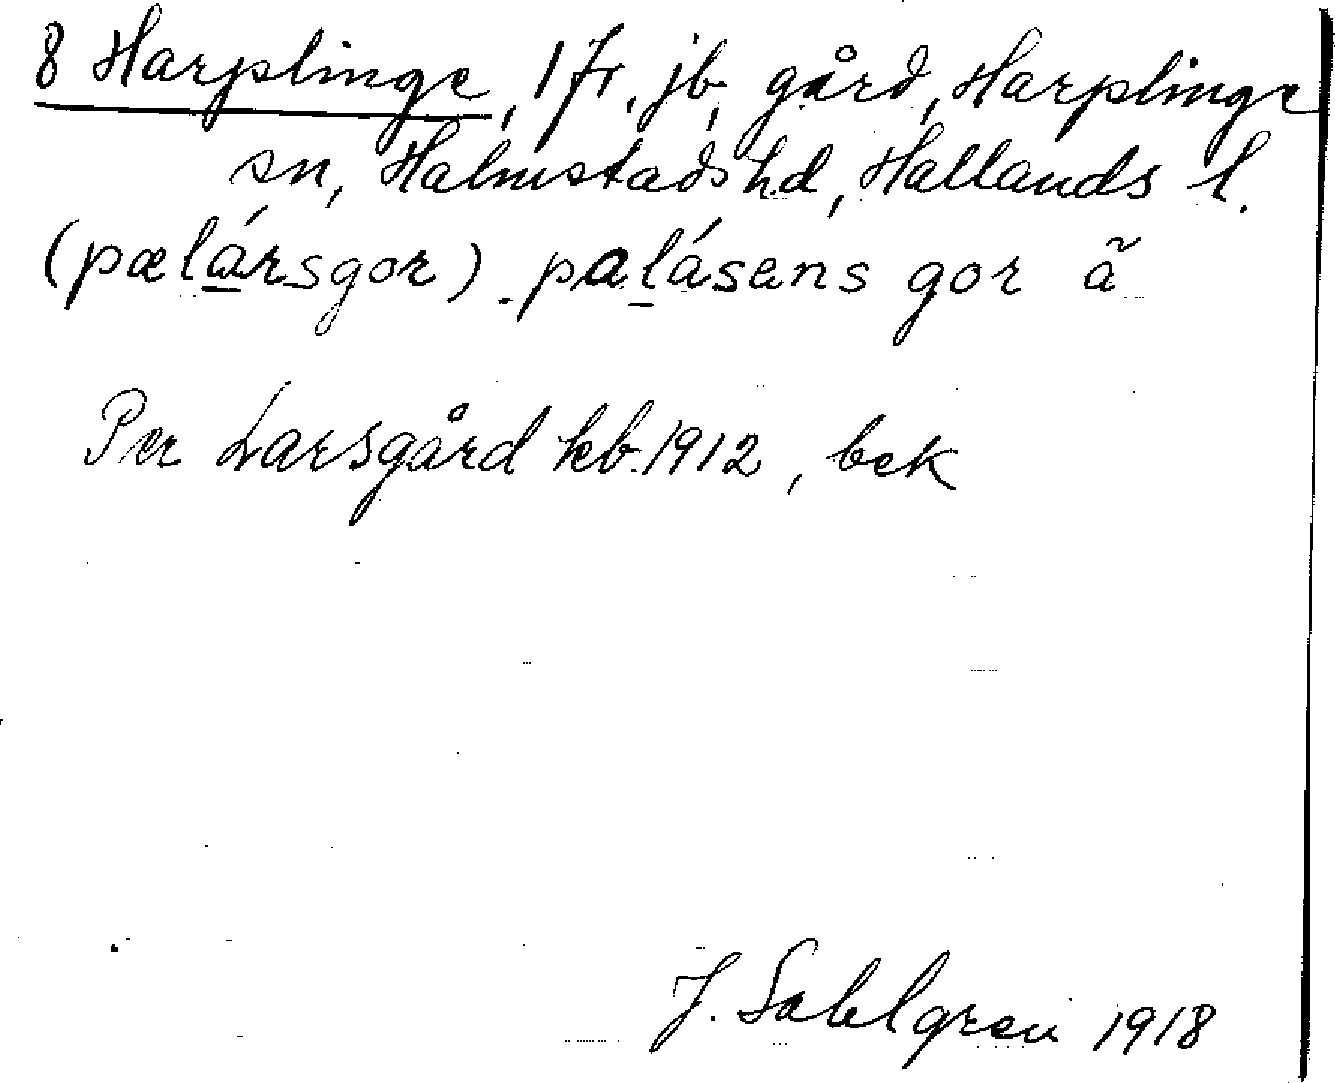 8 Harplinge, 1 fr. jb, gård, Harplinge
sn, Halmstads hd, Hallands l.
(pælársgor). palásens gor ã
Per Larsgård kb. 1912, bek
J. Sahlgren 1918